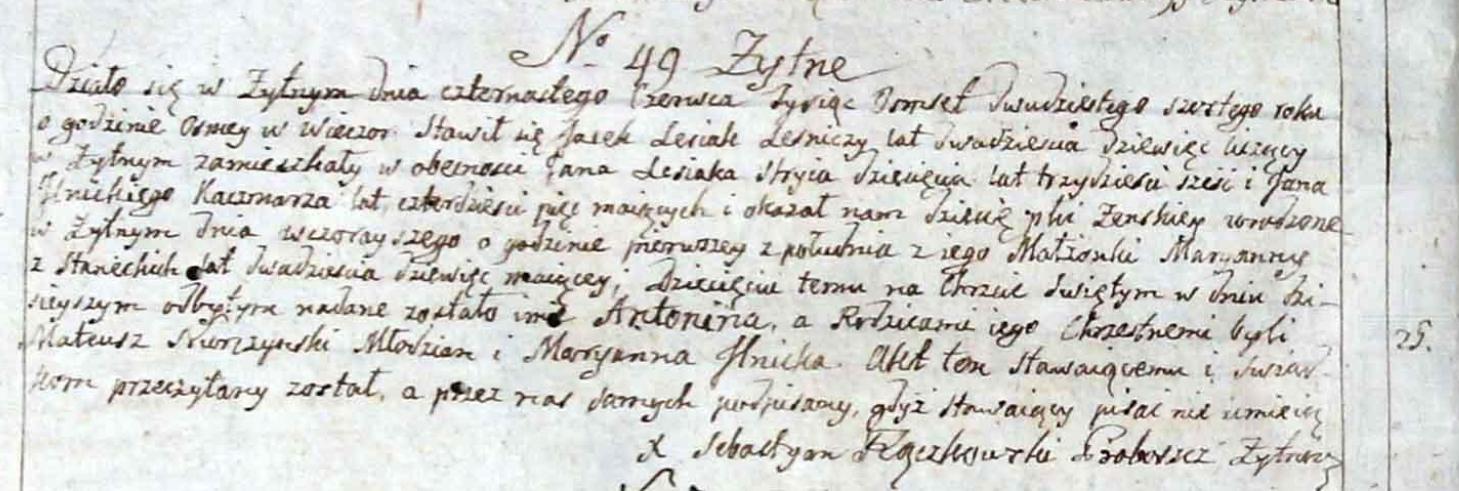 No 49 Zytne
Działo się w Żytnym dnia czternastego Czerwca Tysiąc Osmset dwudziestego szostego roku
o godzinie Osmey w wieczor. Stawił się Jacek Lesiak Lesniczy lat dwadziescia dziewięc liczący
w Żytnym zamieszkały w obecnosci Jana Lesiaka Stryia dziecięcia lat trzydziesci szesc i Jana
Ilnickiego Kaczmarza lat czterdziesci pięc maiących i okazał nam dziecię płci Zenskiey urodzone
w Żytnym dnia wczorayszego o godzinie pierwszey z południa z iego Małzonki Maryanny
z Staneckich lat dwadziescia dziewięc maiącey; Dziecięciu temu na Chrzcie Swiętym w dniu dzi-
sieyszym odbytym nadane zostało imie Antonina, a Rodzicami iego Chrzestnemi byli
Mateusz Młodzian i Maryanna Ilnicka. Akt ten stawaiącemu i Swiad-
kom przeczytany został, a przez nas samych podpisany, gdyż stawaiący pisac nie umieią
x Sebastyan Proboszcz
25.